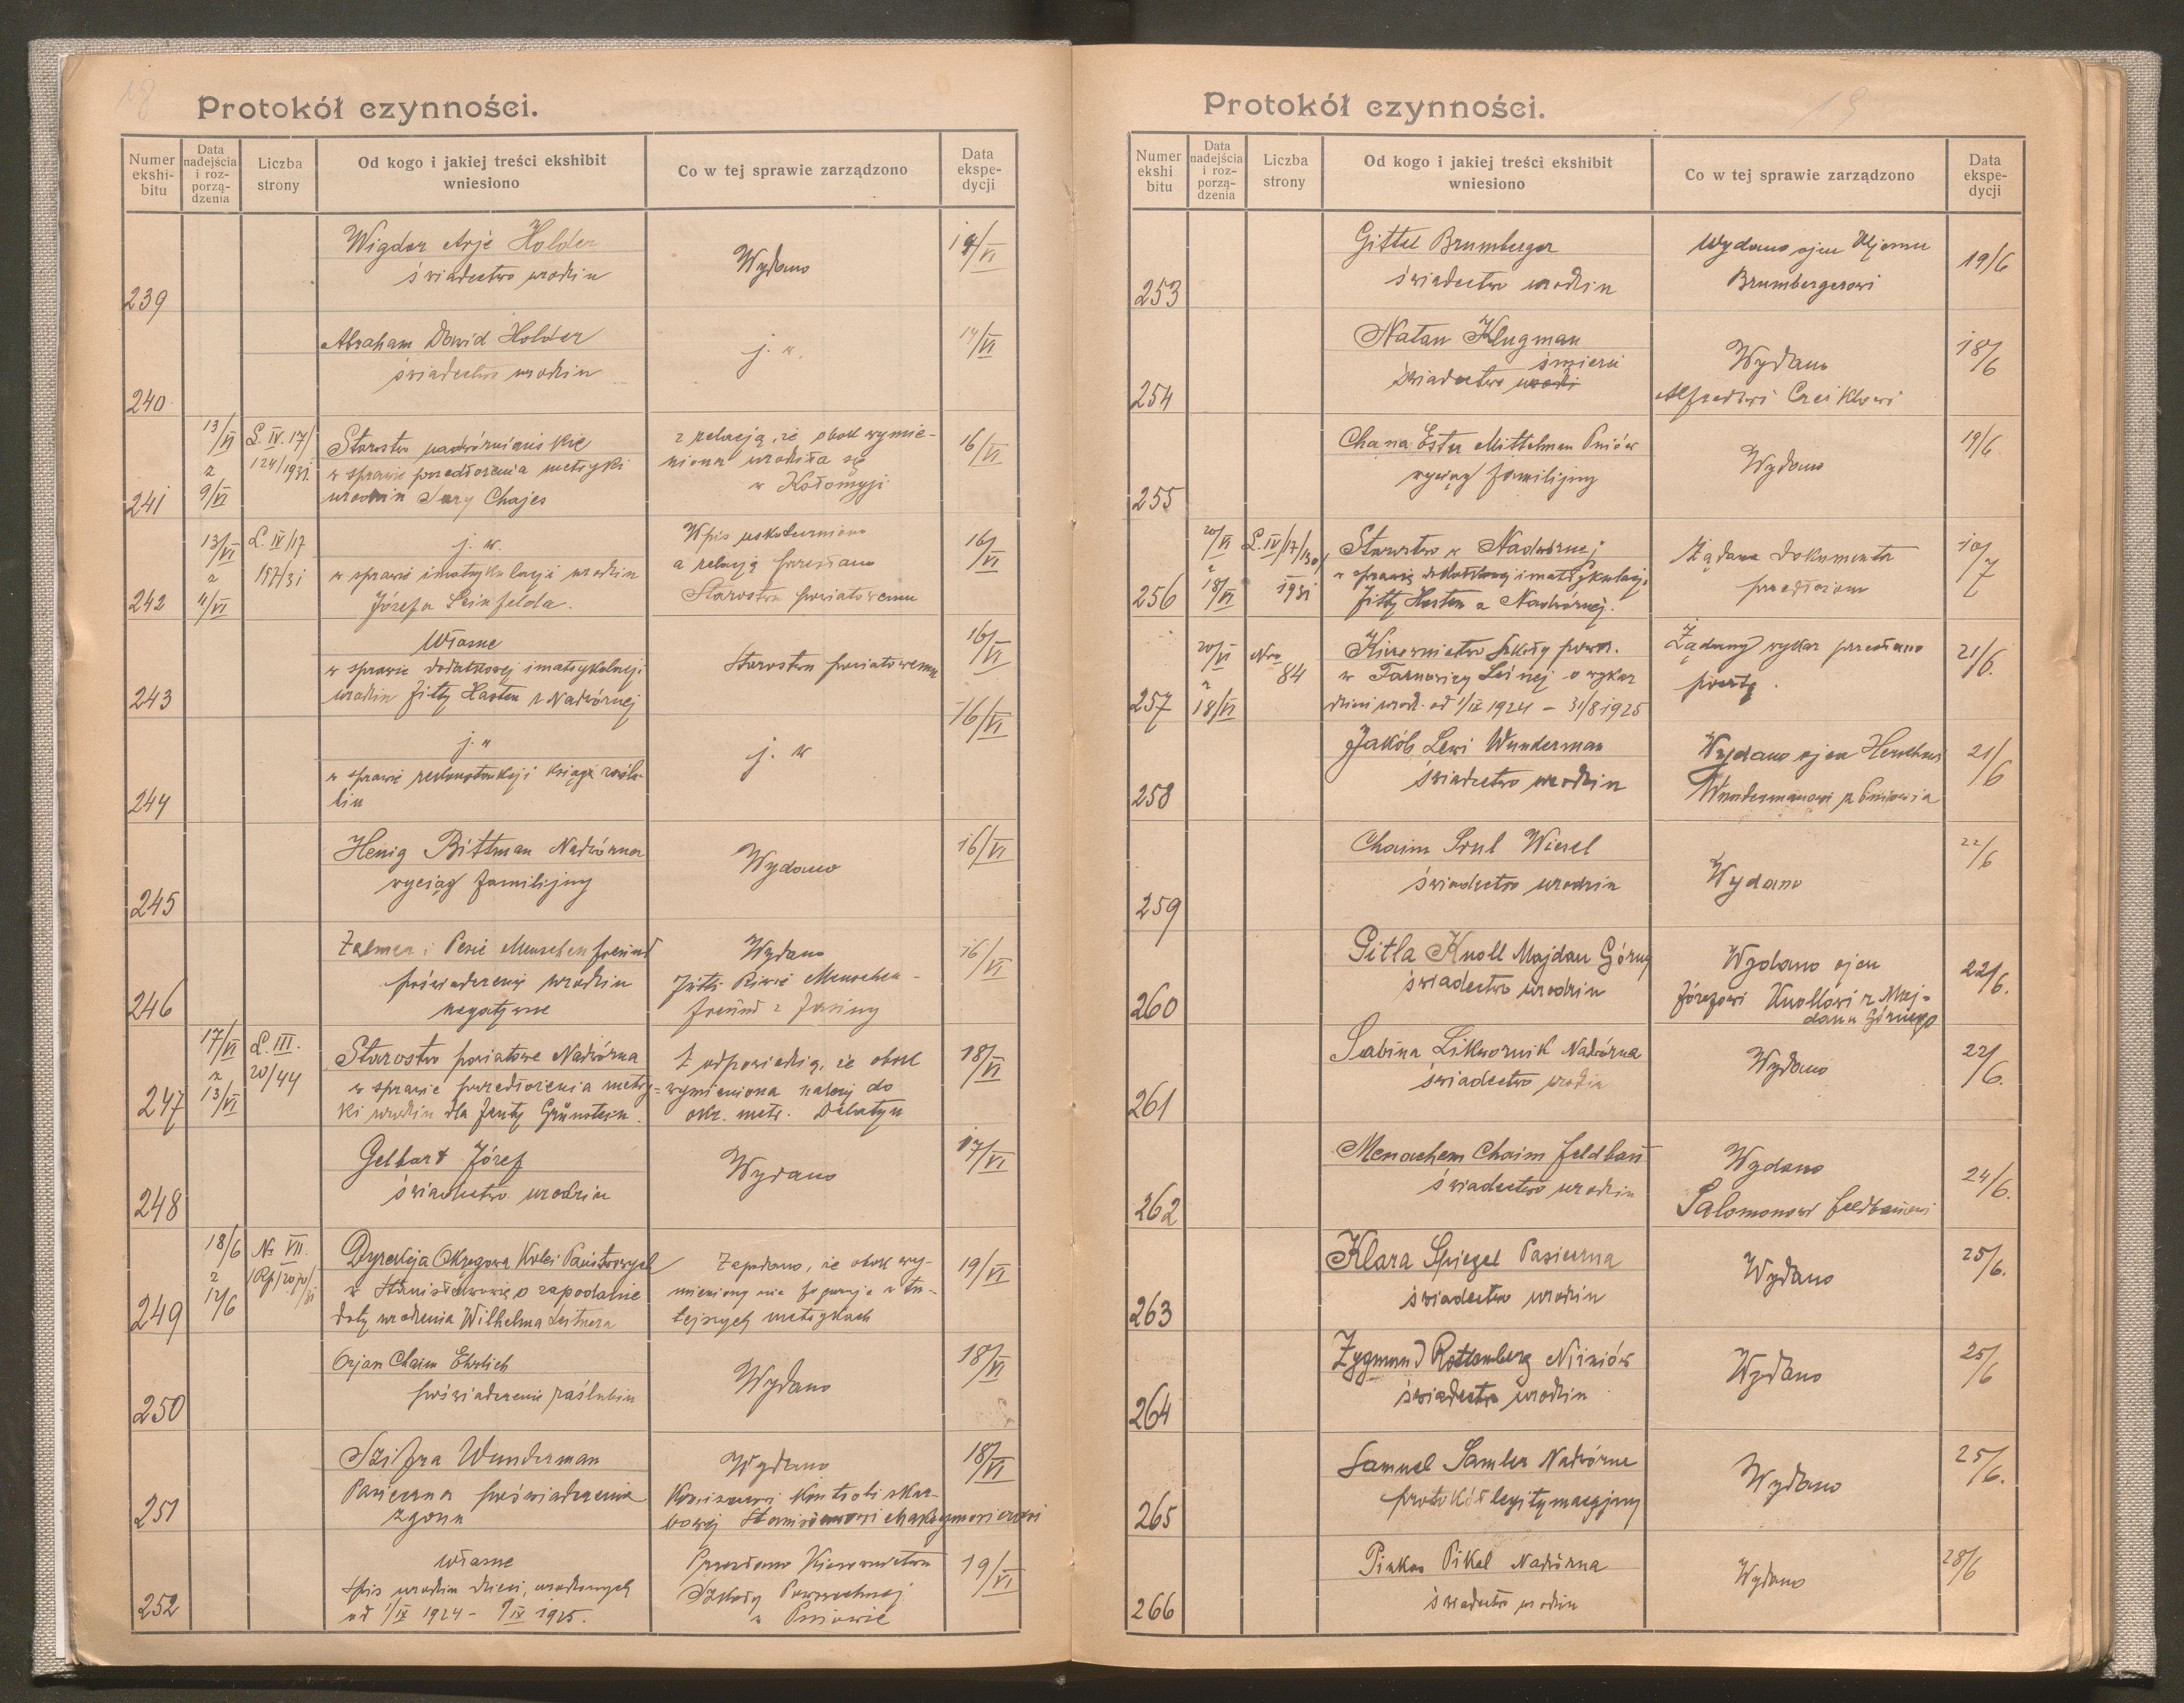 18
Protokół czynności.
Numer ekshi- bitu
Data nadejścia i roz- porzą- dzenia
Liczba strony
Od kogo i jakiej treści ekshibit wniesiono
Co w tej sprawie zarządzono
Data ekspe- dycji
239
Wigdor Arje Holder
świadectwo urodzin
Wydano
14/VI
240
Abraham Dawid Holder
świadectwo urodzin
j. w.
14/VI
241
13/VI
z
9/VI
L. IV. 17/
124/1931.
Starostwo nadwórniańskie
w sprawie przedłożenia metryki
urodzin Sary Chajes
z relacją, że obok wymie-
niona urodziła się
w Kołomyji
16/VI
242
13/VI
z
11/VI
L. IV/17
157/31
j. w.
w sprawie imatrykulacji urodzin
Józefa Leinfelda.
Wpis uskuteczniono
a relację przesłano
Starostwu powiatowemu
16/VI
243
Własne
w sprawie dodatkowej imatrykulacji
urodzin Zitty Hasten z Nadwórnej
Starostwu powiatowemu
16/VI
244
j. w
w sprawie rekonstrukcji księgi zaślu-
bin
j. w
16/VI
245
Henig Bittman Nadwórna
wyciąg familijny
Wydano
16/VI
246
Zalmen i Perie Menschenfreund
poświadczenie urodzin
negatywne
Wydano
Menschen-
freund z
16/VI
247
17/VI
z
13/VI
L. III.
20/44
Starostwo powiatowe Nadwórna
w sprawie przedłożenia metry-
ki urodzin dla Jenty Grünstein.
Z odpowiedzią, że obok
wymieniona należy do
okr. metr. Delatyn
18/VI
248
Gelbart Józef
świadectwo urodzin
Wydano
17/VI
249
18/6
z
12/6
No VII.
Dyrekcja Okręgowa Kolei Państwowych
w Stanisławowie o zapodanie
daty urodzenia Wilhelma Leitnera
Zapodano, że obok wy-
mieniony nie figuruje w tu-
tejszych metrykach
19/VI
250
Orjan Chaim Ehrlich
poświadczenie zaślubin
Wydano
18/VI
251
Szifra Wunderman
Pasieczna poświadczenie
zgonu
Wydano
Komisarzowi Kontroli skar-
bowej
18/VI
252
Własne
Spis urodzin dzieci, urodzonych
od 1/IX 1924 - 1925.
Przesłano Kierownictwu
Szkoły Powszechnej
w Pniowie
19/VI
19
Protokół czynności.
Numer ekshi bitu
Data nadejścia i roz- porzą- dzenia
Liczba strony
Od kogo i jakiej treści ekshibit wniesiono
Co w tej sprawie zarządzono
Data ekspe- dycji
253
Gittel Brumberger
świadectwo urodzin
Wydano ojcu
Brumbergerowi
19/6
254
Natan Klugman
śmierci
świadectwo urodzi
Wydano
18/6
255
Chana Ester Mittelman Pniów
wyciąg familijny
Wydano
19/6.
256
20/VI
z
18/VI
L. IV/17/130/
1931
Starostwo w Nadwórnej
w sprawie dodatkowej imatrykulacji
Zitty Hasten z Nadwórnej.
Żądane dokumenta
przedłożono
10/7
257
20/VI
z
18/VI
Nro
84
Kierownictwo Szkoły powsz.
w Tarnowicy Leśnej o wykaz
dzieci urodz. od 1/IX 1924 - 31/8 1925
Żądany wykaz przesłano
pocztą.
21/6.
258
Jakób Lewi Wunderman
świadectwo urodzin
Wydano ojcu
Wundermanowi z Pniowia
21/6
259
Chaim Srul Wiesel
świadectwo urodzin
Wydano
22/6
260
Gitla Knoll Majdan Górny
świadectwo urodzin
Wydano ojcu
Józefowi Knollowi z Maj-
danu Górnego
22/6.
261
Sabina Likwornik Nadwórna
świadectwo urodzin
Wydano
22/6.
262
Menachem Chaim Feldbau
świadectwo urodzin
Wydano
Salomonowi Feldbauowi
24/6.
263
Klara Spiegel Pasieczna
świadectwo urodzin
Wydano
25/6.
264
Zygmund Rottenberg Niżniów
świadectwo urodzin
Wydano
25/6
265
Samuel Samler Nadwórna
protokół legitymacyjny
Wydano
25/6.
266
Pinkas Pikel Nadwórna
świadectwo urodzin
Wydano
28/6